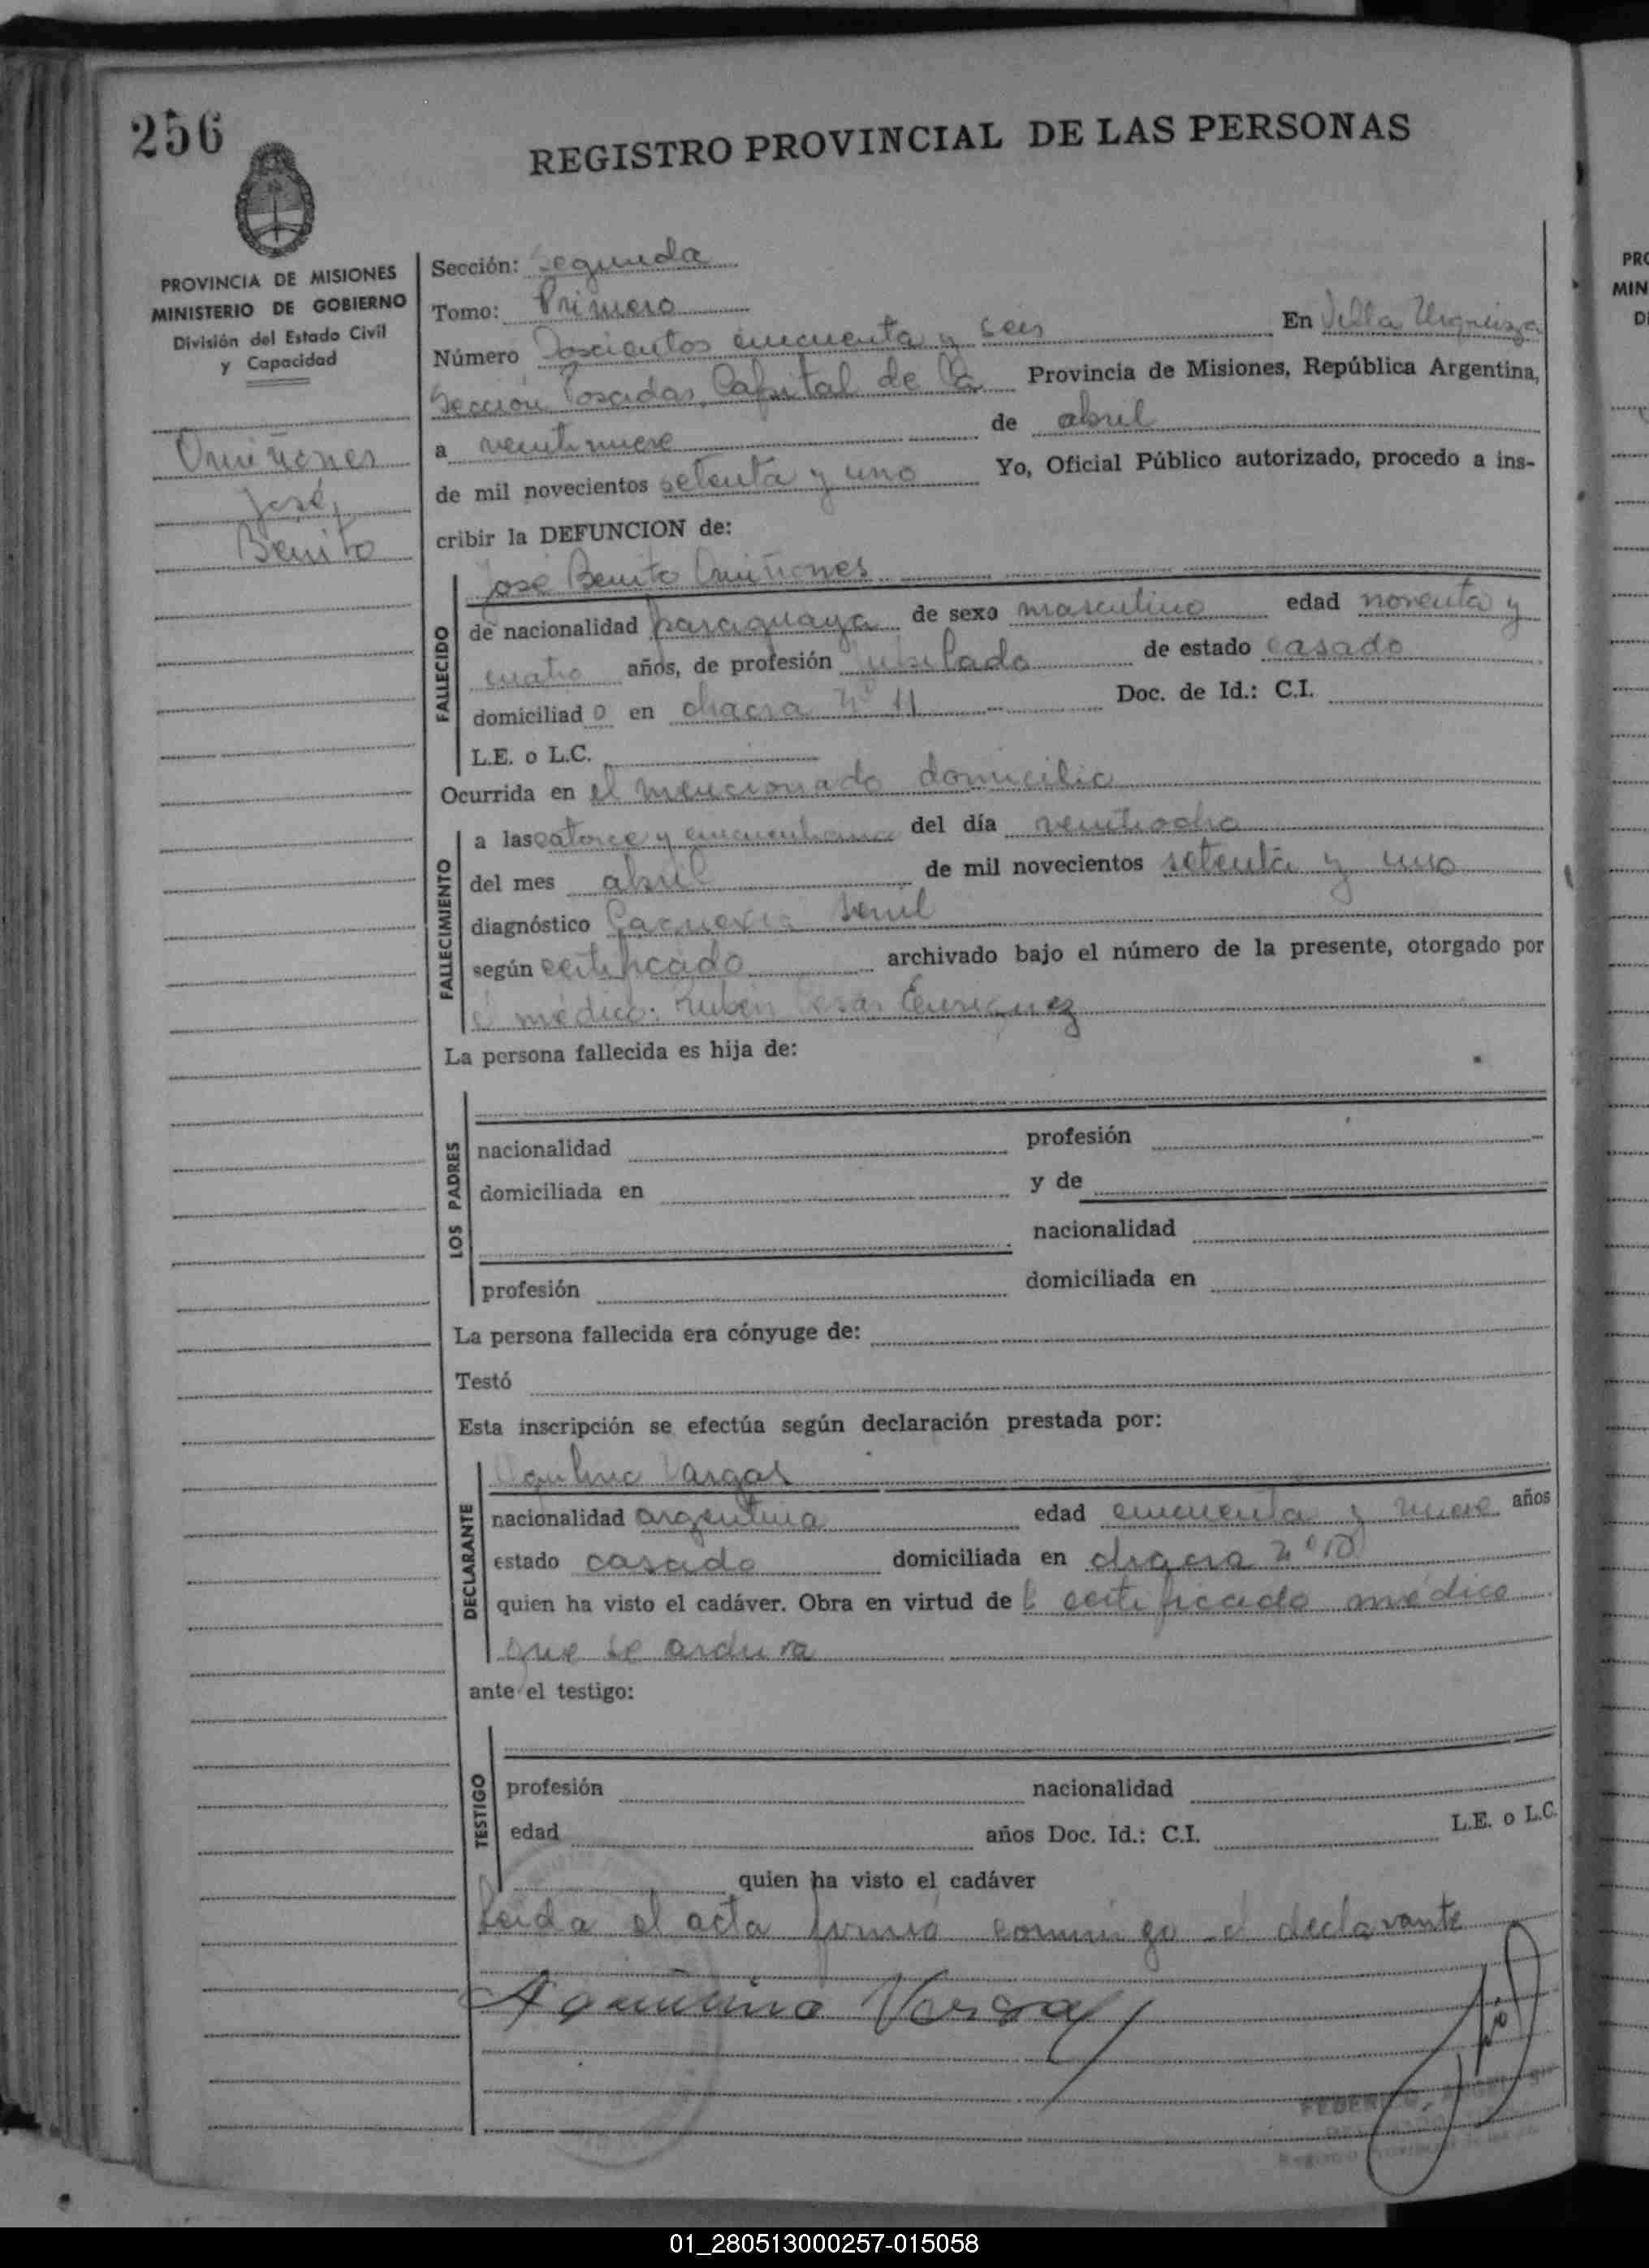 256
REGISTRO PROVINCIAL DE LAS PERSONAS
PROVINCIA DE MISIONES
MINISTERIO DE GOBIERNO
División del Estado Civil
y Capacidad
Quiñones
José
Benito
Sección: Segunda
Tomo: Primero
Número Doscientos cincuenta y seis En Villa Urquiza
Sección Posadas, Capital de la Provincia de Misiones, República Argentina,
a veintinueve de abril
de mil novecientos setenta y uno Yo, Oficial Público autorizado, procedo a ins-
cribir la DEFUNCION de:
FALLECIDO
José Benito Quiñones
de nacionalidad paraguaya de sexo masculino edad noventa y
cuatro años, de profesión jubilado de estado casado
domiciliado en chacra Nº 11 Doc. de Id.: C.I.
L.E. o L.C.
Ocurrida en el mencionado domicilio
FALLECIMIENTO
a las catorce y cincuenta del día veintiocho
del mes abril de mil novecientos setenta y uno
diagnóstico Caquexia senil
según certificado archivado bajo el número de la presente, otorgado por
el médico: Rubén Cesar Enriquez
La persona fallecida es hija de:
LOS PADRES
nacionalidad profesión
domiciliada en y de
nacionalidad
profesión domiciliada en
La persona fallecida era cónyuge de:
Testó
Esta inscripción se efectúa según declaración prestada por:
DECLARANTE
Aquilino Vargas
nacionalidad argentina edad cincuenta y nueve años
estado casado domiciliada en chacra Nº 10
quien ha visto el cadáver. Obra en virtud del certificado médico
que se archiva
ante el testigo:
TESTIGO
profesión nacionalidad
edad años Doc. Id.: C.I. L.E. o L.C.
quien ha visto el cadáver
Leida el acta firmó conmigo el declarante
Aquilino Vargas
PRO
MIN
Di
01_280513000257-015058